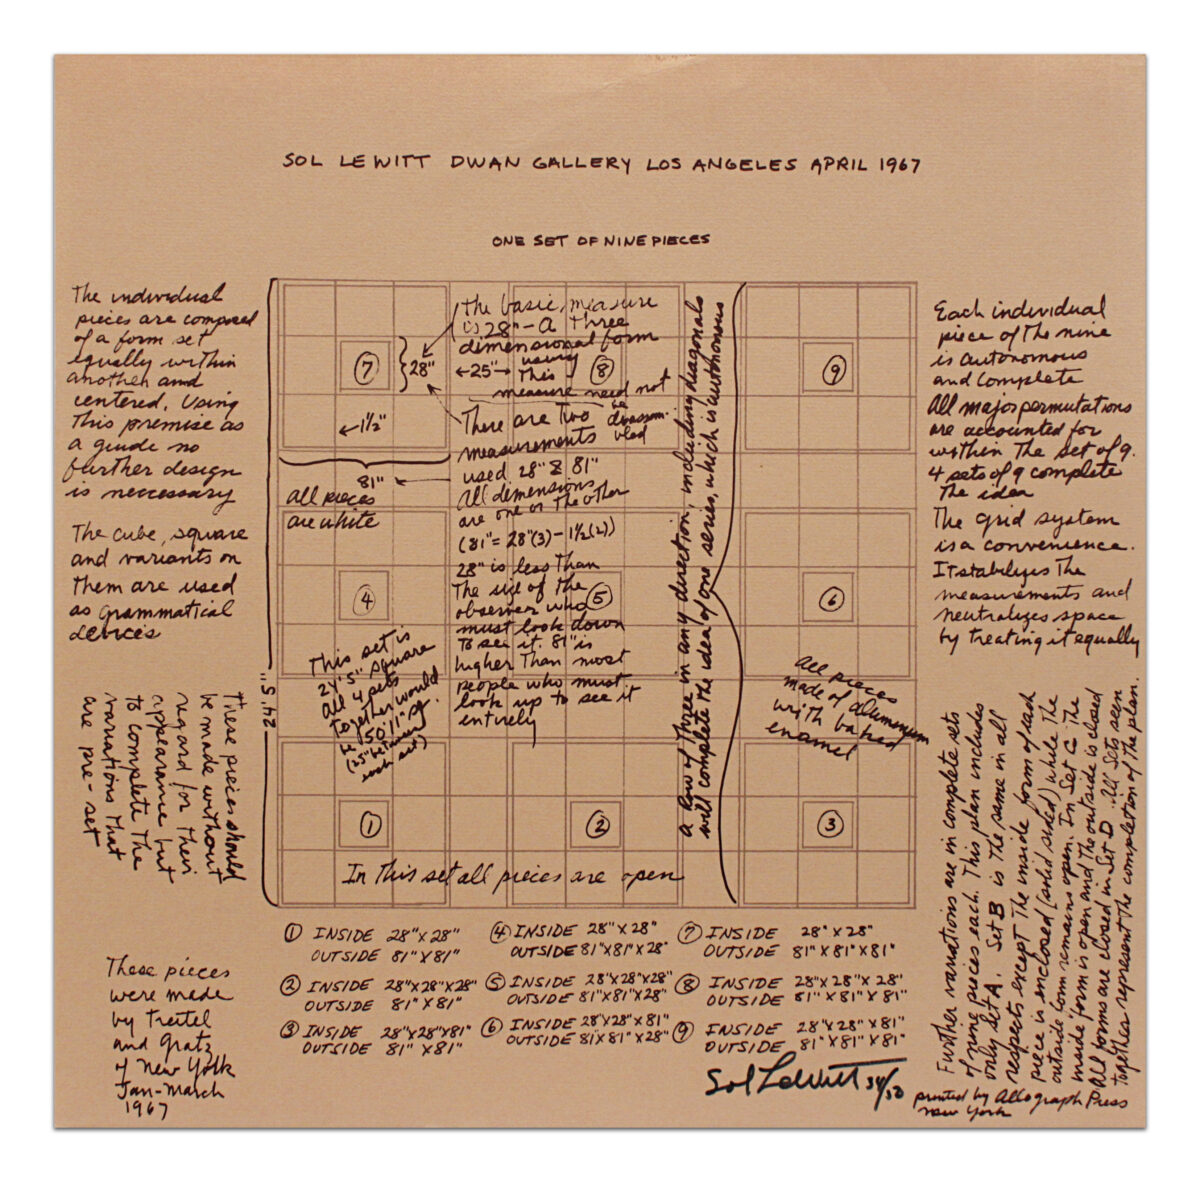 SOL LEWITT DWAN GALLERY LOS ANGELES APRIL 1967
ONE SET OF NINE PIECES
The individual
pieces are composed
of a form set
equally within
another and
centered. Using
this premise as
a guide no
further design
is neccessary
The cube, square
and variants on
them are used
as grammatical
devices
These pieces should
be made without
regard for their
appearance but
to complete the
variations that
are pre-set
These pieces
were made
by Treitel
and Gratz
of New York
Jan-March
1967
24'5"
7
28"
1½"
81"
All pieces
are white
4
This set is
24'5" square
all 4 sets
together would
be 50'11" sq.
(25" between
each set)
1
The basic measure
is 28" - A three
dimensional form
using
this
measure need not
be
disassem-
bled
25"
8
There are two
measurements
used 28" & 81"
All dimensions
are one or the other
(81" = 28"(3) - 1½(2))
28" is less than
the size of the
observer who
must look down
to see it. 81" is
higher than most
people who must
look up to see it
entirely
5
2
In this set all pieces are open
a Row of three in any direction, including diagonals
will complete the idea of one series, which is autonomous
9
6
All pieces
made of aluminum
with baked
enamel
3
Each individual
piece of the nine
is autonomous
and complete
All major permutations
are accounted for
within the set of 9.
4 sets of 9 complete
the idea
The grid system
is a convenience.
It stabilizes the
measurements and
neutralizes space
by treating it equally
Further variations are in complete sets
of nine pieces each. This plan includes
only set A. Set B is the same in all
respects except the inside form of each
piece is enclosed (solid sided) while the
outside form remains open. In Set C the
inside form is open and the outside is closed
All forms are closed in Set D. All Sets seen
together represent the completion of the plan.
1 INSIDE 28"X28"
OUTSIDE 81"X81"
2 INSIDE 28"X28"X28"
OUTSIDE 81"X81"
3 INSIDE 28"X28"X81"
OUTSIDE 81"X81"
4 INSIDE 28"X28"
OUTSIDE 81"X81"X28"
5 INSIDE 28"X28"X28"
OUTSIDE 81"X81"X28"
6 INSIDE 28"X28"X81"
OUTSIDE 81X81"X28"
7 INSIDE 28"X28"
OUTSIDE 81"X81"X81"
8 INSIDE 28"X28"X28"
OUTSIDE 81"X81"X81"
9 INSIDE 28"X28"X81"
OUTSIDE 81"X81"X81"
Sol LeWitt 34/50
printed by Allograph Press
New York